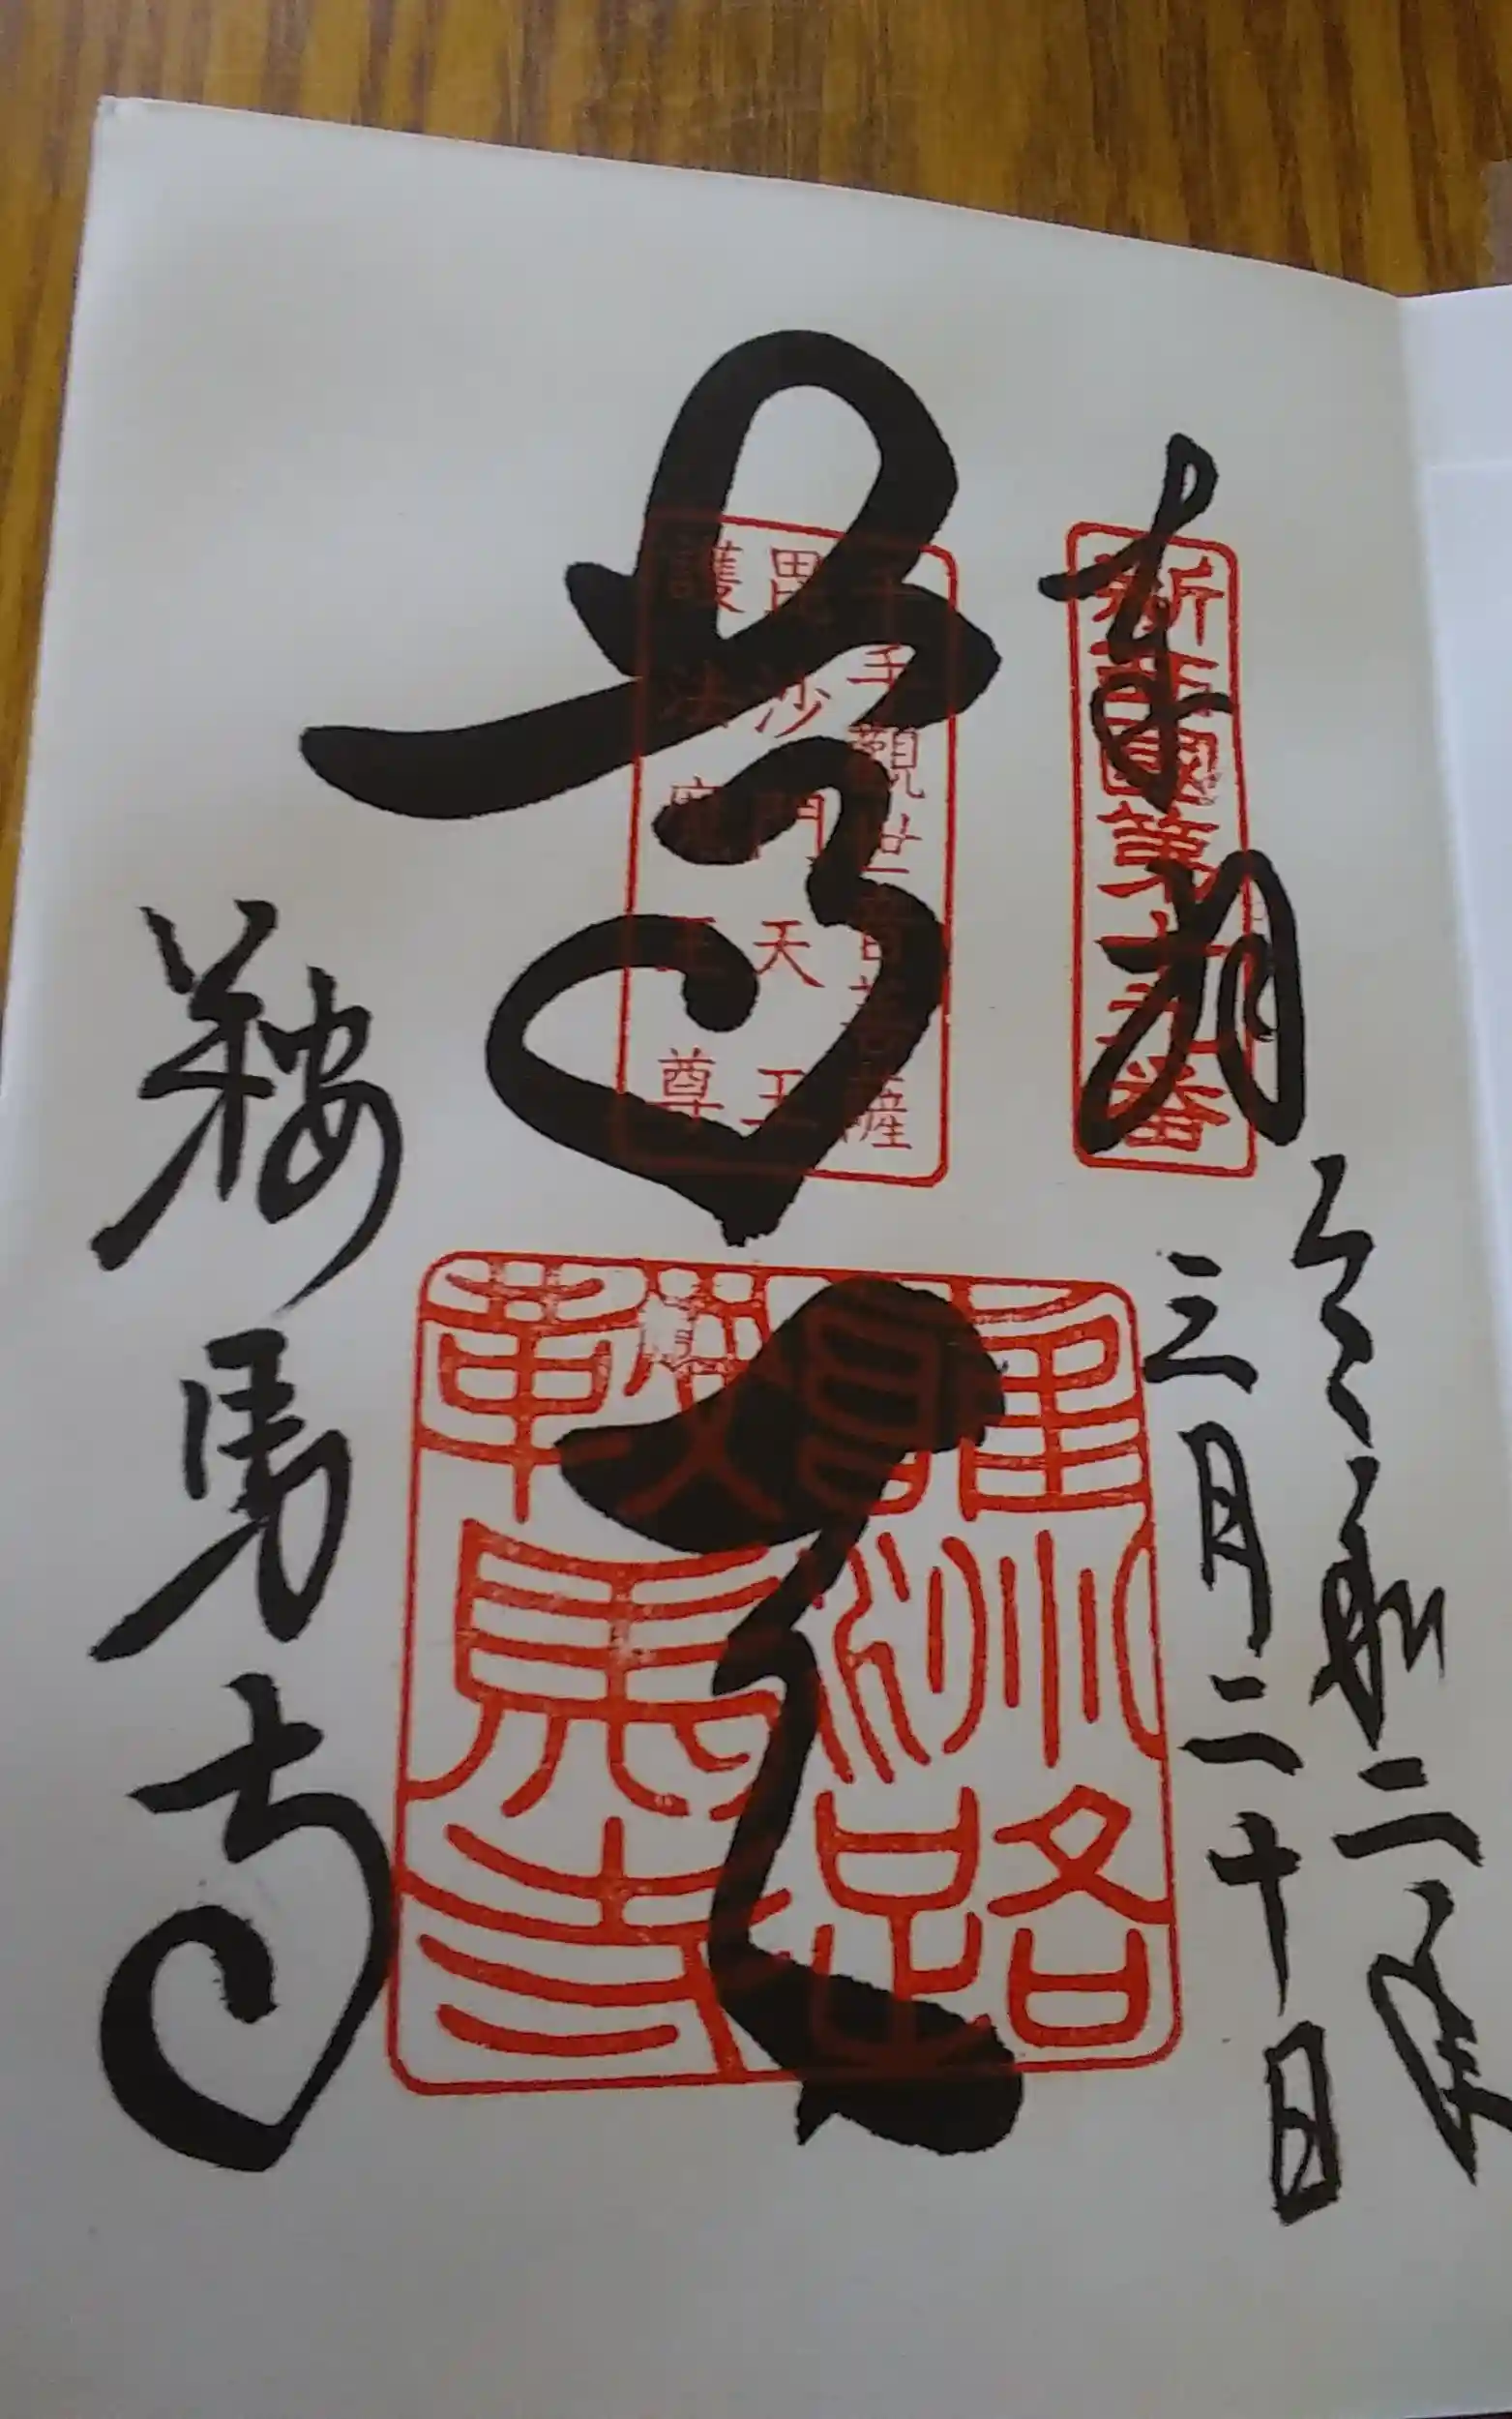 令和二年
三月二十日
奉拝
新西國第十九番
尊天
千手觀世音菩薩
毘沙門天王
護法魔王尊
鞍馬寺
鞍馬寺